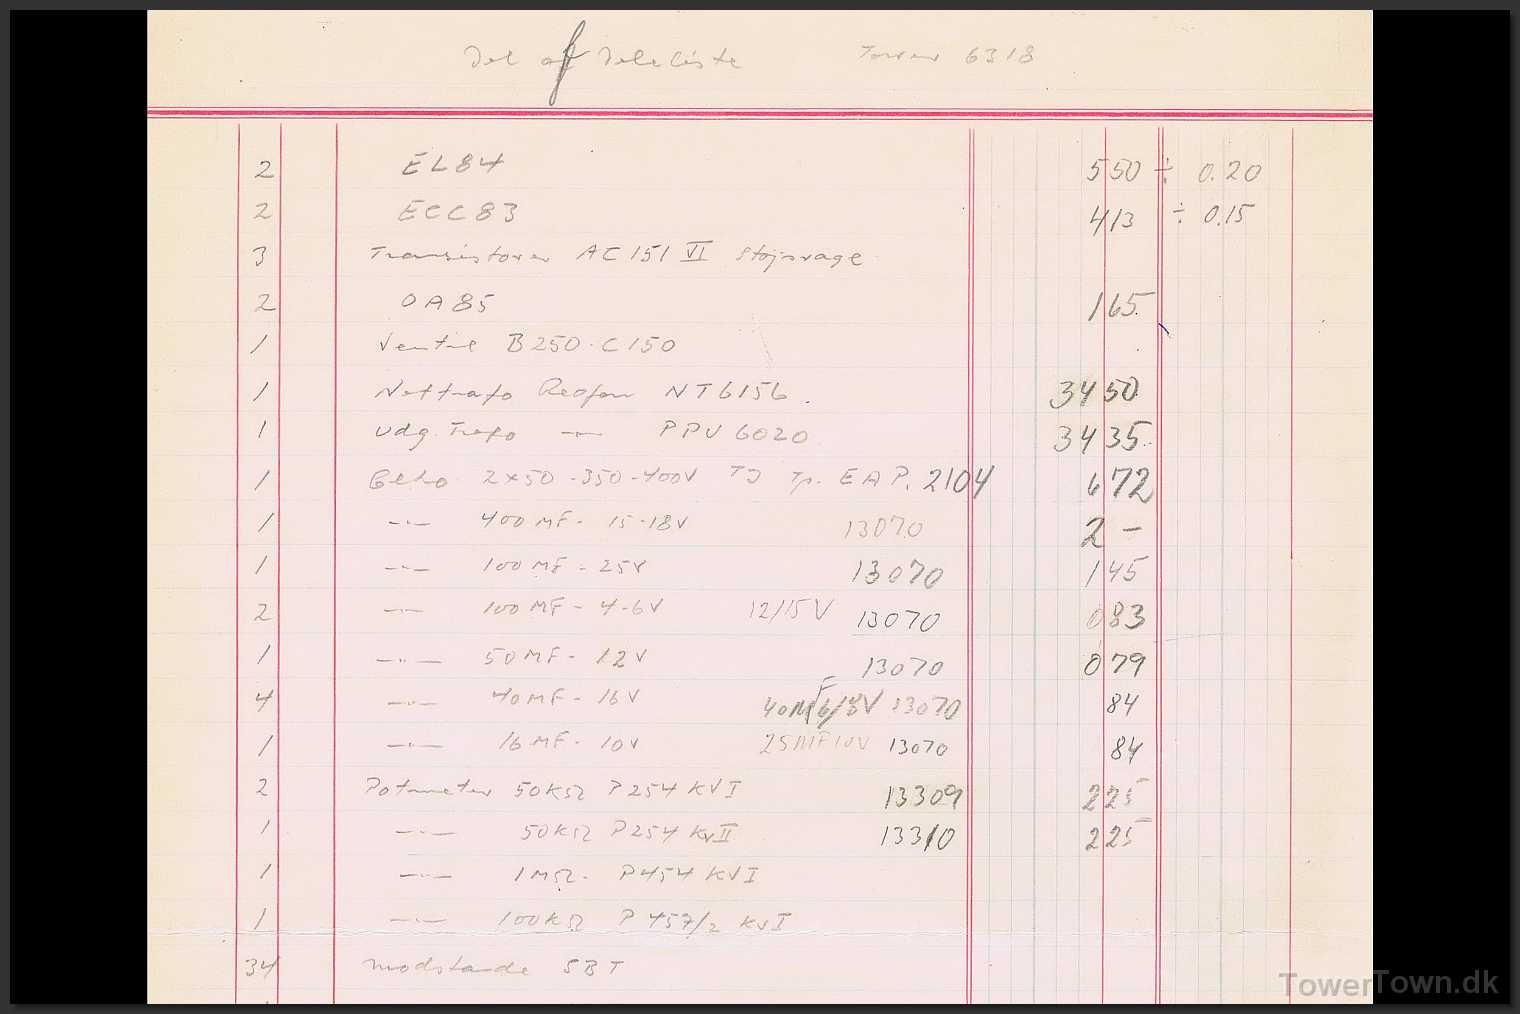 Del af Deleliste Tower 6318
2 EL84 550 ÷ 0.20
2 ECC83 413 ÷ 0.15
3 Transistorer AC151 VI Støjsvage
2 OA85 165
1 Ventil B250-C150
1 Nettrafo Reofon NT6156. 3450
1 Udg. Trafo -"- PPU 6020 3435
1 Elko 2x50-350-400V TJ Tp. EAP. 2104 672
1 -"- 400 MF - 15-18V 13070 2 -
1 -"- 100 MF - 25V 13070 145
2 -"- 100 MF - 4-6V 12/15V 13070 083
1 -"- 50 MF - 12V 13070 079
4 -"- 40 MF - 16V 40MF 13070 84
1 -"- 16 MF - 10V 25MF10V 13070 84
2 Potmeter 50KΩ P254 KVI 13309 225
1 -"- 50KΩ P254 KVII 13310 225
1 -"- 1MΩ - P454 KVI
1 -"- 100KΩ P457/2 KVI
34 Modstande SBT
TowerTown.dk